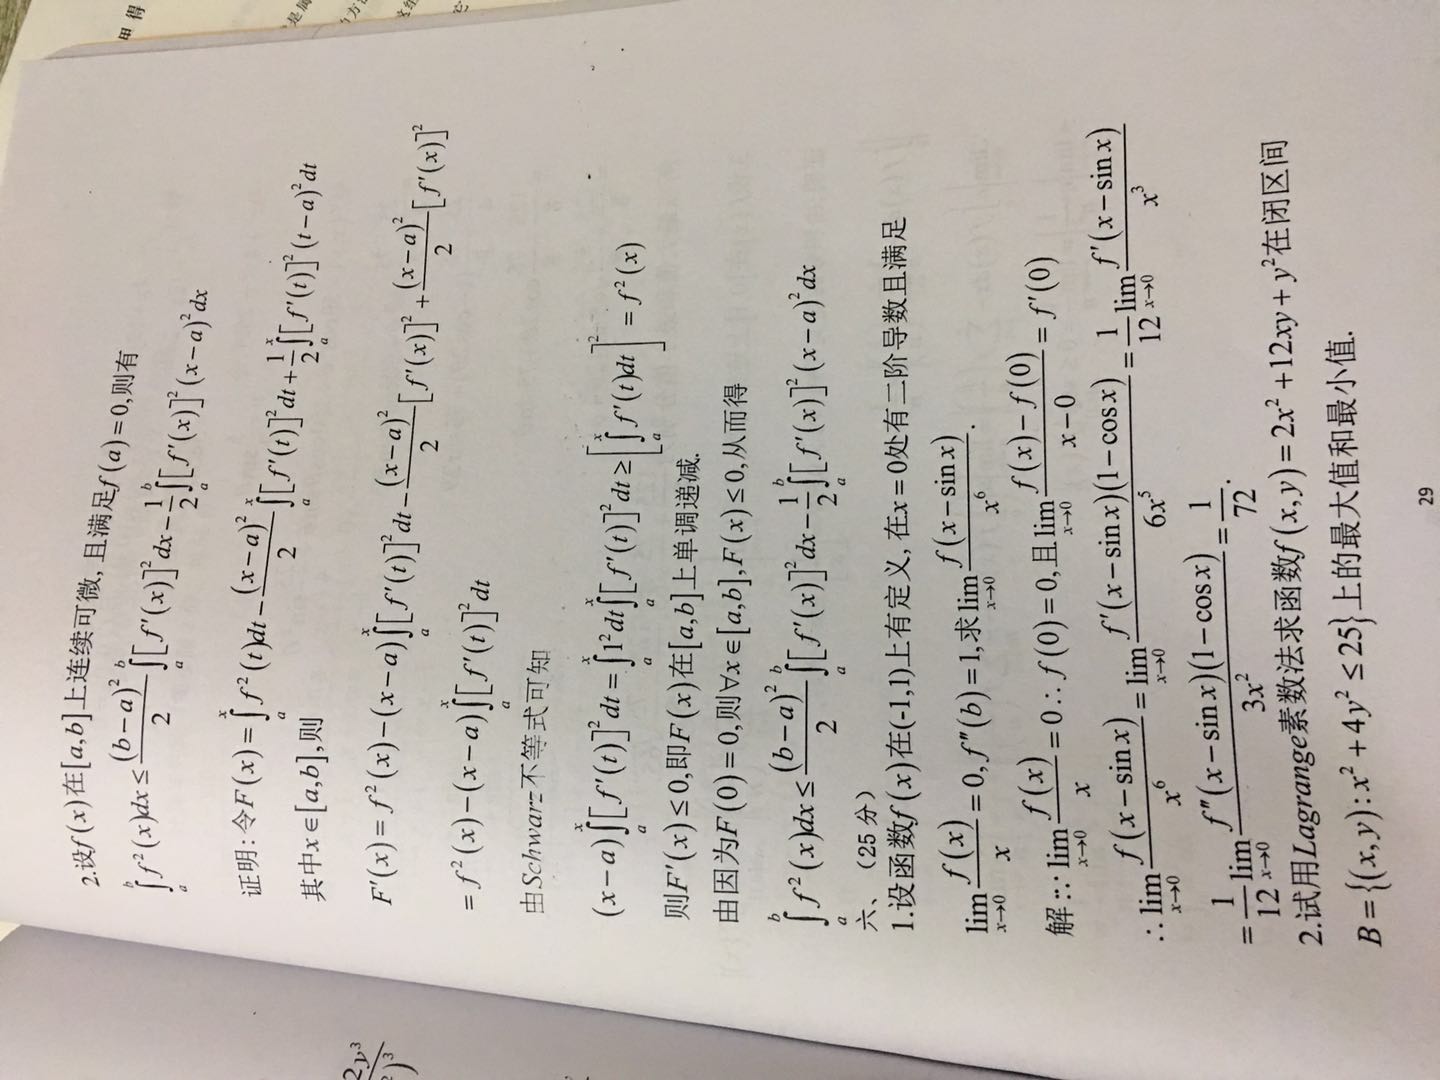 2.设f(x)在[a,b]上连续可微,且满足f(a)=0,则有
∫_a^b f²(x)dx≤(b-a)²/2 ∫_a^b [f'(x)]²dx-1/2 ∫_a^b [f'(x)]²(x-a)²dx
证明:令F(x)=∫_a^x f²(t)dt-(x-a)²/2 ∫_a^x [f'(t)]²dt+1/2 ∫_a^x [f'(t)]²(t-a)²dt
其中x∈[a,b],则
F'(x)=f²(x)-(x-a)∫_a^x [f'(t)]²dt-(x-a)²/2 [f'(x)]²+(x-a)²/2 [f'(x)]²
=f²(x)-(x-a)∫_a^x [f'(t)]²dt
由Schwarz不等式可知
(x-a)∫_a^x [f'(t)]²dt=∫_a^x 1²dt∫_a^x [f'(t)]²dt≥[∫_a^x f'(t)dt]²=f²(x)
则F'(x)≤0,即F(x)在[a,b]上单调递减.
由因为F(0)=0,则∀x∈[a,b],F(x)≤0,从而得
∫_a^b f²(x)dx≤(b-a)²/2 ∫_a^b [f'(x)]²dx-1/2 ∫_a^b [f'(x)]²(x-a)²dx
六、（25分）
1.设函数f(x)在(-1,1)上有定义,在x=0处有二阶导数且满足
lim_{x→0} f(x)/x=0,f''(b)=1,求lim_{x→0} f(x-sin x)/x⁶.
解:∵lim_{x→0} f(x)/x=0∴f(0)=0,且lim_{x→0} (f(x)-f(0))/(x-0)=f'(0)
∴lim_{x→0} f(x-sin x)/x⁶=lim_{x→0} f'(x-sin x)(1-cos x)/6x⁵=1/12 lim_{x→0} f'(x-sin x)/x³
=1/12 lim_{x→0} f''(x-sin x)(1-cos x)/3x²=1/72.
2.试用Lagrange素数法求函数f(x,y)=2x²+12xy+y²在闭区间
B={(x,y):x²+4y²≤25}上的最大值和最小值.
29